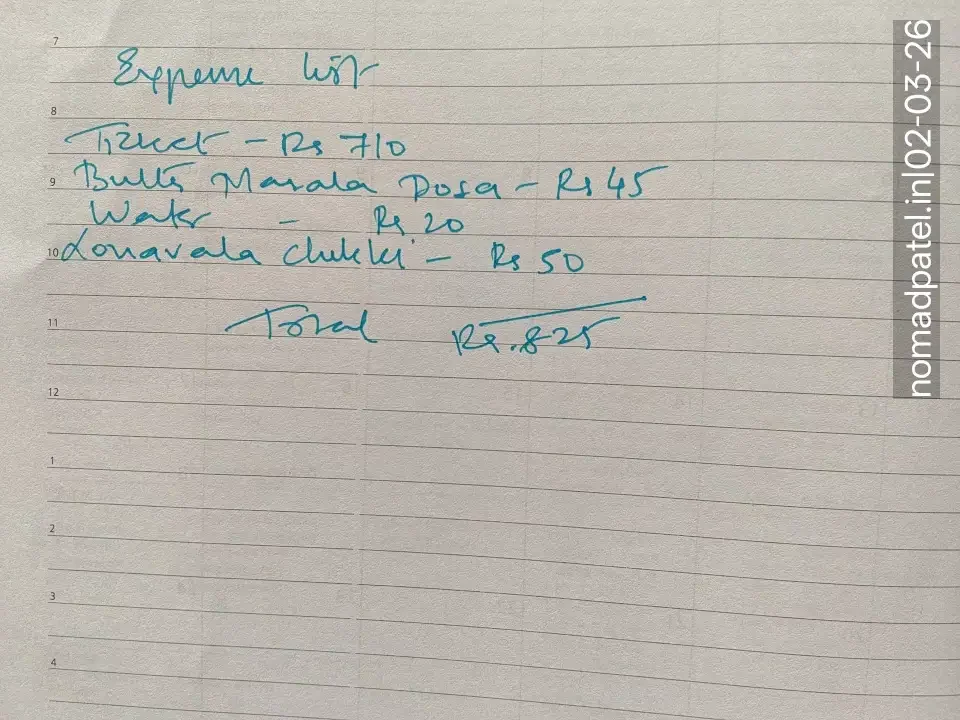 7
Expense list
8
Ticket - Rs 710
9 Butter Masala Dosa - Rs 45
Water - Rs 20
10 Lonavala Chikki - Rs 50
11 Total Rs. 825
12
1
2
3
4
nomadpatel.in|02-03-26